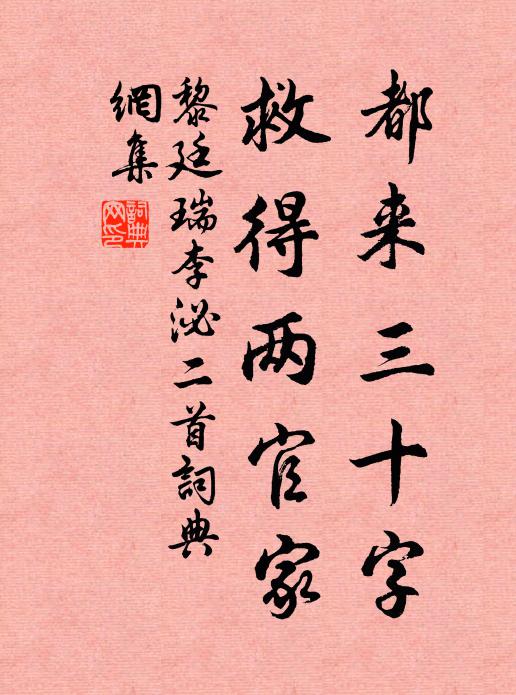 都来三十字
救得两官家
黎廷瑞李泌二首詞典
網集
詞典
网印